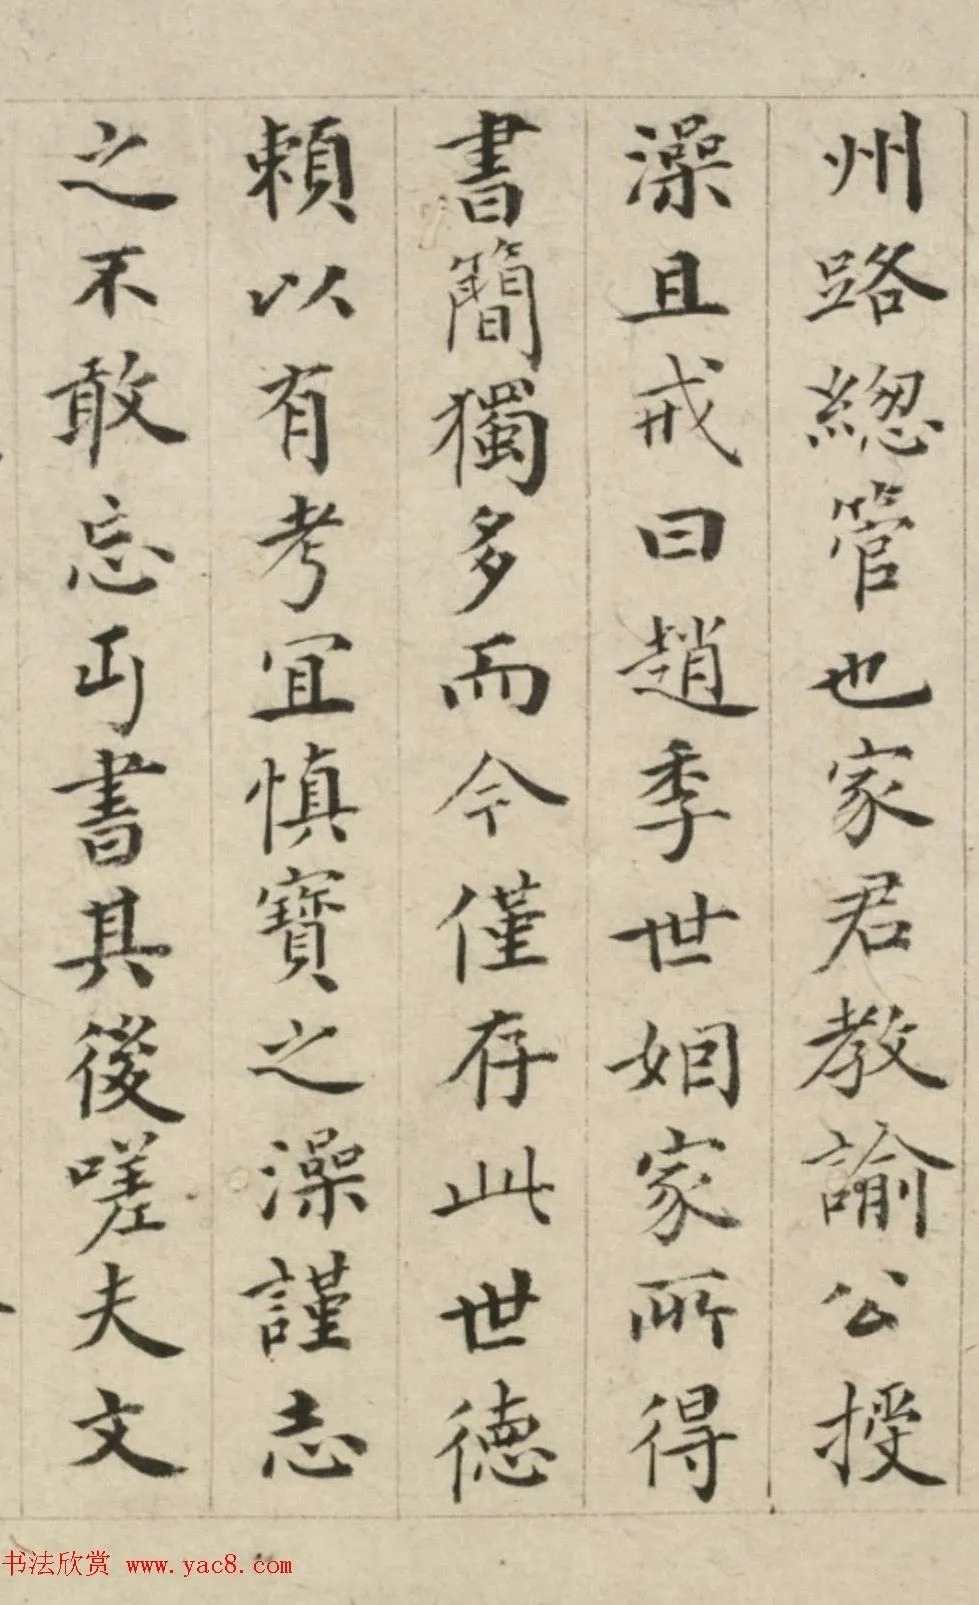 州路緫管也家君教諭公授
澡且戒曰趙季世姻家所得
書簡獨多而今僅存此世德
頼以有考宜慎寶之澡謹志
之不敢忘丐書其後嗟夫文
书法欣赏 www.yac8.com